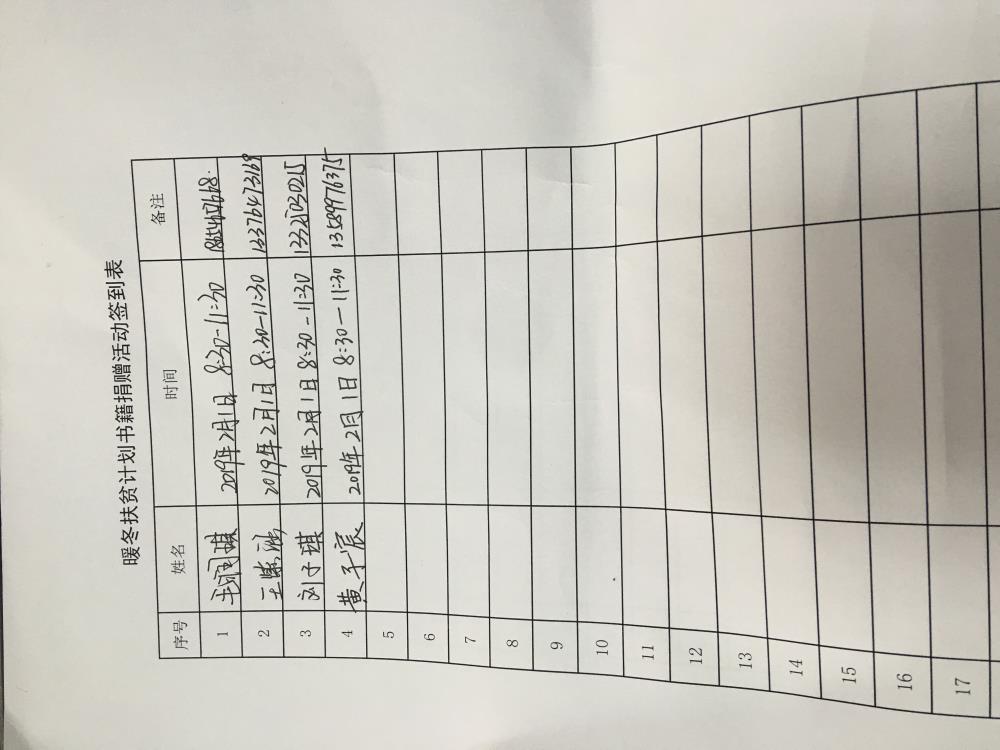 暖冬扶贫计划书籍捐赠活动签到表
序号 姓名 时间 备注
1 2019年2月1日 8:30-11:30
2 2019年2月1日 8:30-11:30 13376473169
3 刘子琪 2019年2月1日 8:30-11:30
4 黄子宸 2019年2月1日 8:30-11:30 13589976375
5
6
7
8
9
10
11
12
13
14
15
16
17